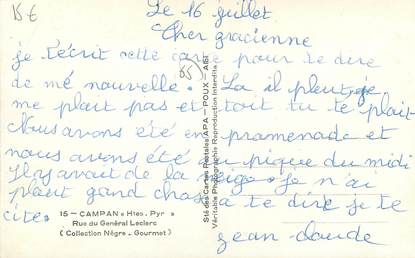 15€
Le 16 juillet
Cher gracienne
je t'écrit cette carte pour te dire
de mé nouvelle. La il pleut je
me plait pas et toit tu te plait
Nous avons été en promenade et
nous avons été au pique du midi
Il y avait de la neige. je n'ai
plaut grand chose a te dire je te
cite.
jean claude
(65)
15 — CAMPAN « Htes. Pyr »
Rue du Général Leclerc
( Collection Nègre - Gourmet )
Sté des Cartes Postales APA — POUX — ALBI
Véritable Photographie Reproduction Interdite